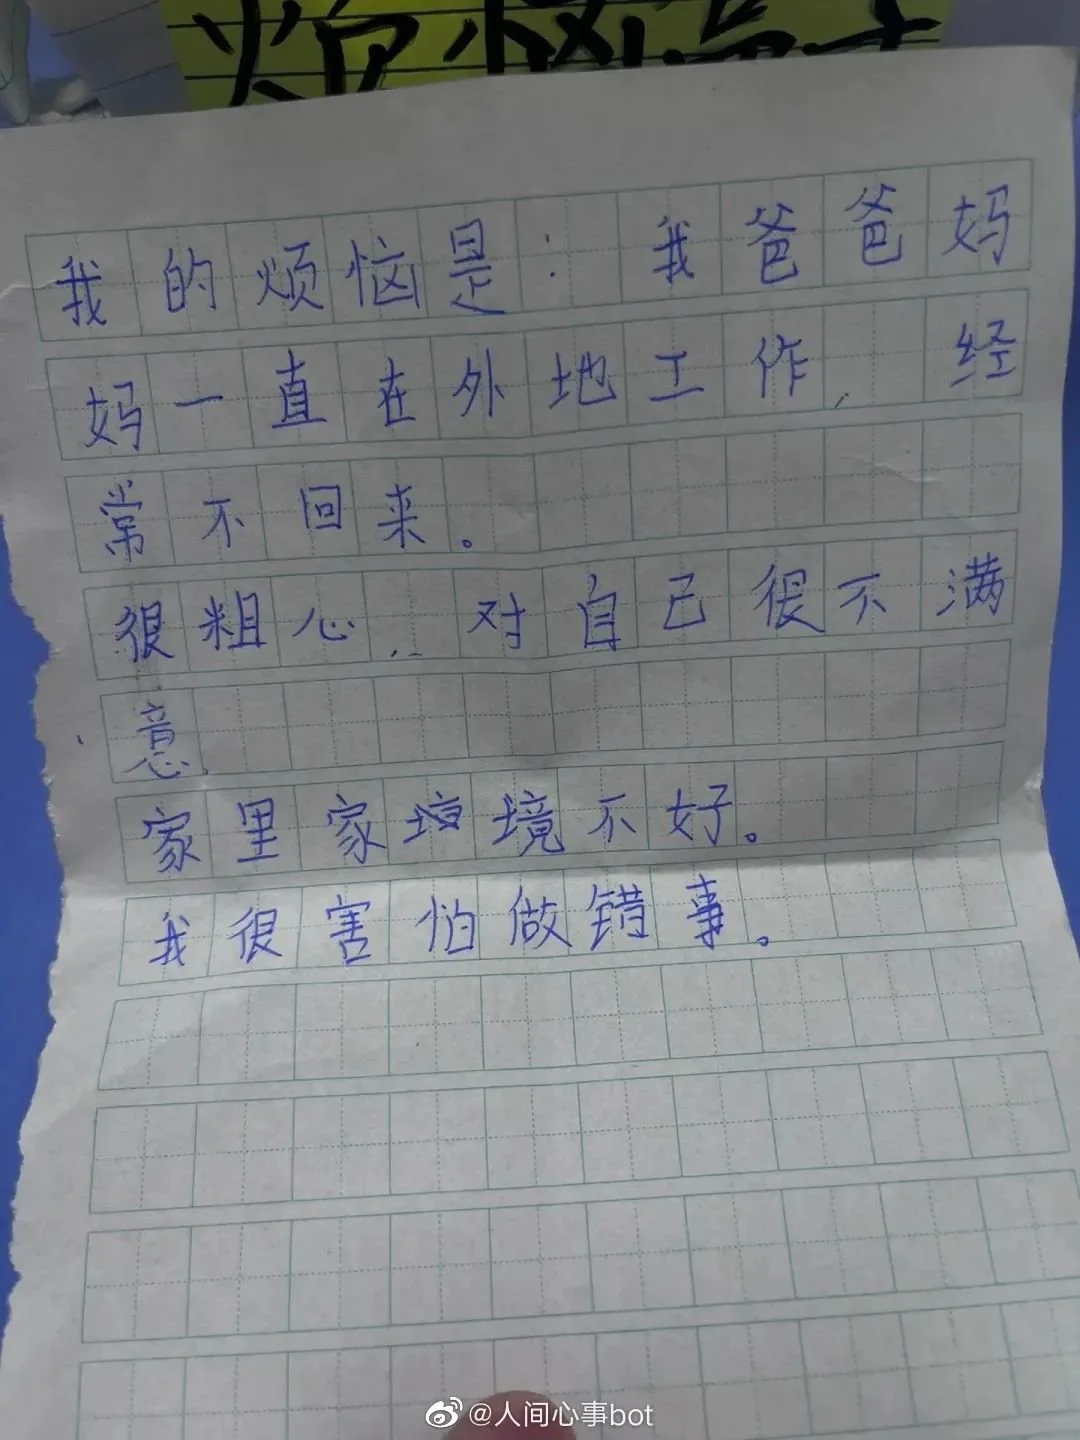 烦恼
我的烦恼是: 我爸爸妈
妈一直在外地工作, 经
常不回来。
很粗心, 对自己很不满
意
家里家境不好。
我很害怕做错事。
@人间心事bot